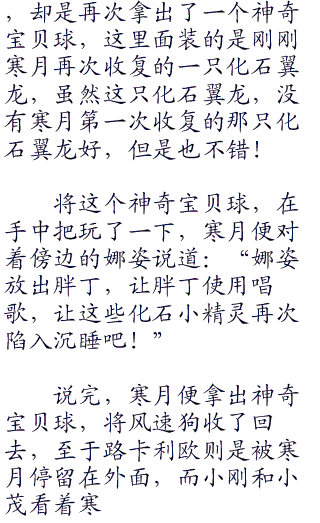 ，却是再次拿出了一个神奇
宝贝球，这里面装的是刚刚
寒月再次收复的一只化石翼
龙，虽然这只化石翼龙，没
有寒月第一次收复的那只化
石翼龙好，但是也不错！
将这个神奇宝贝球，在
手中把玩了一下，寒月便对
着傍边的娜姿说道：“娜姿
放出胖丁，让胖丁使用唱
歌，让这些化石小精灵再次
陷入沉睡吧！”
说完，寒月便拿出神奇
宝贝球，将风速狗收了回
去，至于路卡利欧则是被寒
月停留在外面，而小刚和小
茂看着寒